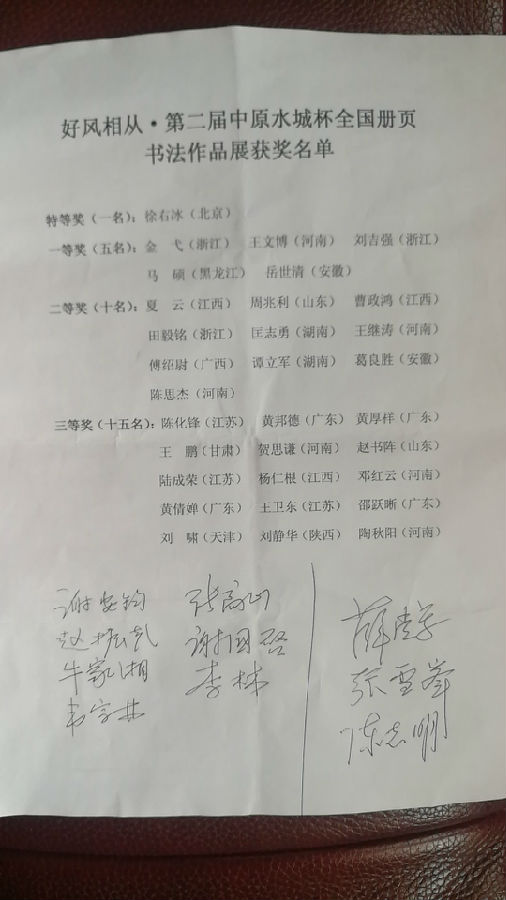 好风相从·第二届中原水城杯全国册页
书法作品展获奖名单
特等奖（一名）：徐右冰（北京）
一等奖（五名）：金　弋（浙江）　王文博（河南）　刘吉强（浙江）
马　硕（黑龙江）　岳世清（安徽）
二等奖（十名）：夏　云（江西）　周兆利（山东）　曹政鸿（江西）
田毅铭（浙江）　匡志勇（湖南）　王继涛（河南）
傅绍尉（广西）　谭立军（湖南）　葛良胜（安徽）
陈思杰（河南）
三等奖（十五名）：陈化锋（江苏）　黄邦德（广东）　黄厚样（广东）
王　鹏（甘肃）　贺思谦（河南）　赵书阵（山东）
陆成荣（江苏）　杨仁根（江西）　邓红云（河南）
黄倩婵（广东）　王卫东（江苏）　邵跃晰（广东）
刘　啸（天津）　刘静华（陕西）　陶秋阳（河南）
谢安钧　张高山
赵振乾　谢国启
牛家湘　李林
张雪峰
陈志明